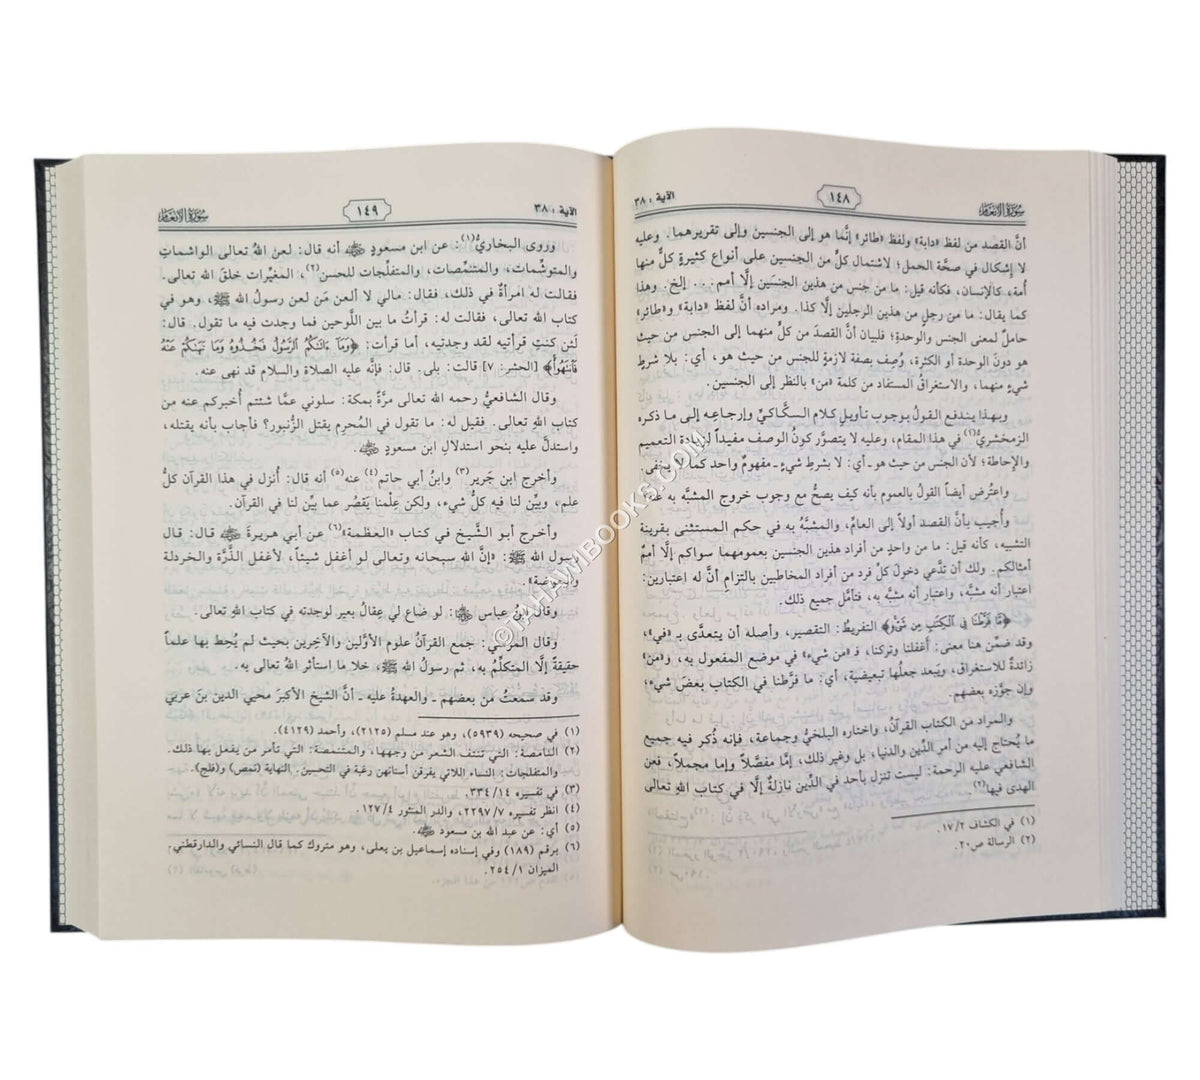 سورة الأنعام
١٤٨
الآية : ٣٨
أنَّ القصد من لفظ «دابة» ولفظ «طائر» إنَّما هو إلى الجنسين وإلى تقريرهما. وعليه
لا إشكال في صحَّة الحمل؛ لاشتمال كلٍّ من الجنسين على أنواع كثيرةٍ كلٌّ منها
أمة، كالإنسان، فكأنه قيل: ما من جنس من هذين الجنسَين إلَّا أمم... إلخ. وهذا
كما يقال: ما من رجلٍ من هذين الرجلين إلَّا كذا. ومراده أنَّ لفظ «دابة» و«طائر»
حاملٌ لمعنى الجنس والوحدةِ؛ فلبيان أنَّ القصدَ من كلٍّ منهما إلى الجنس من حيث
هو دونَ الوحدة أو الكثرة، وُصِف بصفة لازمةٍ للجنس من حيث هو، أي: بلا شرطِ
شيءٍ منهما، والاستغراقُ المستفاد من كلمة «من» بالنظر إلى الجنسين.
وبهذا يندفع القولُ بوجوب تأويلِ كلام السكَّاكيِّ وإرجاعِه إلى ما ذكره
الزمخشريُّ(١) في هذا المقام، وعليه لا يتصوَّر كونُ الوصف مفيداً لزيادة التعميم
والإحاطة؛ لأن الجنس من حيث هو ـ أي: لا بشرطِ شيءٍ ـ مفهومٌ واحد كما لا يخفى.
واعتُرض أيضاً القولُ بالعموم بأنه كيف يصحُّ مع وجوب خروج المشبَّه به عنه
وأُجيب بأنَّ القصد أولاً إلى العامِّ، والمشبَّهُ به في حكم المستثنى بقرينة
التشبيه، كأنه قيل: ما من واحدٍ من أفراد هذين الجنسين بعمومهما سواكم إلَّا أممٌ
أمثالكم. ولك أن تدَّعي دخولَ كلِّ فرد من أفراد المخاطبين بالتزام أنَّ له اعتبارين:
اعتبار أنه مشبَّه، واعتبار أنه مشبَّه به، فتأمَّل جميع ذلك.
﴿مَّا فَرَّطْنَا فِي الْكِتَٰبِ مِن شَيْءٍ﴾ التفريطُ: التقصير، وأصله أن يتعدَّى بـ «في»،
وقد ضمِّن هنا معنى: أغفلنا وتركنا، فـ «من شيء» في موضع المفعول به، و«من»
زائدةٌ للاستغراق، ويَبعد جعلُها تبعيضية، أي: ما فرَّطنا في الكتاب بعضَ شيء؛
وإن جوَّزه بعضهم.
والمراد من الكتاب القرآنُ، واختاره البلخيُّ وجماعة، فإنه ذُكر فيه جميع
ما يُحتاج إليه من أمر الدِّين والدنيا، بل وغير ذلك، إمَّا مفصَّلاً وإما مجملاً، فعن
الشافعي عليه الرحمة: ليست تنزل بأحد في الدِّين نازلةٌ إلَّا في كتاب اللهِ تعالى
الهدى فيها(٢).
(١) في الكشاف ١٧/٢.
(٢) الرسالة ص٢٠.
الآية : ٣٨
١٤٩
سورة الأنعام
وروى البخاريُّ(١): عن ابن مسعودٍ ﷺ أنه قال: لعن اللهُ تعالى الواشماتِ
والمتوشِّمات، والمتنمِّصات، والمتفلِّجات للحسن(٢)، المغيِّرات خلقَ الله تعالى.
فقالت له امرأةٌ في ذلك، فقال: مالي لا ألعن مَن لعن رسولُ الله ﷺ، وهو في
كتاب الله تعالى، فقالت له: قرأتُ ما بين اللَّوحين فما وجدت فيه ما تقول. قال:
لَئن كنتِ قرأتيه لقد وجدتيه، أما قرأت: ﴿وَمَآ ءَاتَىٰكُمُ ٱلرَّسُولُ فَخُذُوهُ وَمَا نَهَىٰكُمْ عَنْهُ
فَٱنتَهُوا۟﴾ [الحشر: ٧] قالت: بلى. قال: فإنَّه عليه الصلاة والسلام قد نهى عنه.
وقال الشافعيُّ رحمه الله تعالى مرَّةً بمكة: سلوني عمَّا شئتم أُخبركم عنه من
كتاب الله تعالى. فقيل له: ما تقول في المُحرِم يقتل الزُّنبور؟ فأجاب بأنه يقتله،
واستدلَّ عليه بنحو استدلال ابن مسعودٍ
وأخرج ابن جَرير(٣) وابنُ أبي حاتم(٤) عنه(٥) أنه قال: أُنزل في هذا القرآن كلُّ
علم، وبيِّن لنا فيه كلُّ شيء، ولكن عِلْمنا يَقصُر عما بيِّن لنا في القرآن.
وأخرج أبو الشَّيخ في كتاب «العظمة»(٦) عن أبي هريرةَ قال: قال
رسول الله ﷺ: «إنَّ اللهَ سبحانه وتعالى لو أغفل شيئاً، لأغفل الذَّرَّة والخردلة
والبعوضة».
وقال ابنُ عباس: لو ضاع لي عِقالُ بعيرٍ لوجدته في كتاب الله تعالى.
وقال المرسي: جمع القرآنُ علوم الأوَّلين والآخِرين بحيث لم يُحِط بها علماً
حقيقةً إلَّا المتكلِّمُ به، ثم رسولُ الله ﷺ، خلا ما استأثر اللهُ تعالى به.
وقد سَمعتُ من بعضهم ـ والعهدةُ عليه ـ أنَّ الشيخ الأكبرَ محيي الدين بنَ عربي
(١) في صحيحه (٥٩٣٩)، وهو عند مسلم (٢١٢٥)، وأحمد (٤١٢٩).
(٢) النامصة: التي تنتف الشعر من وجهها، والمتنمصة: التي تأمر من يفعل بها ذلك.
والمتفلجات: النساء اللائي يفرقن أسنانهن رغبة في التحسين. النهاية (نمص) و(فلج).
(٣) في تفسيره ٣٣٤/١٤.
(٤) انظر تفسيره ٢٢٩٧/٧، والدر المنثور ١٢٧/٤.
(٥) أي: عن عبد الله بن مسعود
(٦) برقم (١٨٩) وفي إسناده إسماعيل بن يعلى، وهو متروك كما قال النسائي والدارقطني.
الميزان ٢٥٤/١.
© FAHAMBOOKS.COM